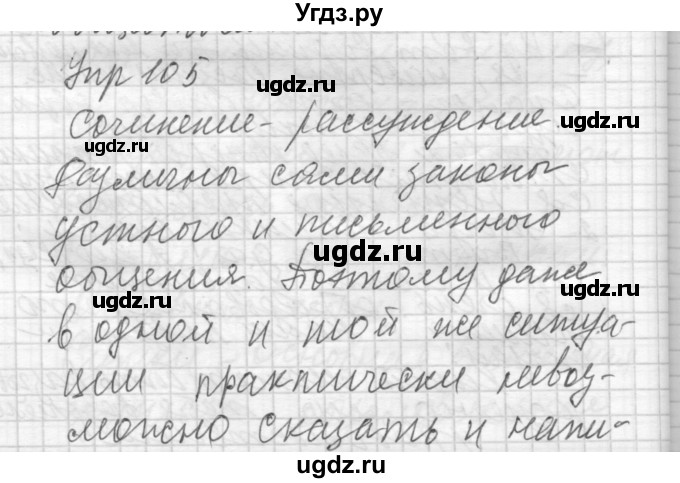 Угдз.ру
Упр 105
ugdz.ru ugdz.ru
Сочинение - рассуждение.
ugdz.ru
Различны сами законы
ugdz.ru
устного и письменного
ugdz.ru
общения. Поэтому даже
ugdz.ru ugdz.ru
в одной и той же ситуа-
ugdz.ru
ции практически невоз-
ugdz.ru
можно сказать и напи-
ugdz.ru